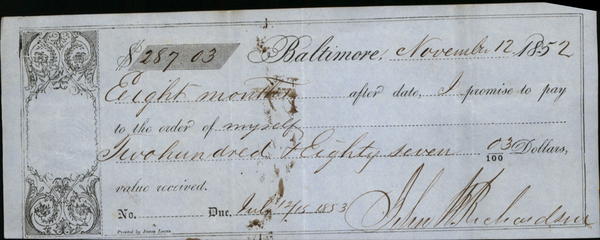 $287 03 Baltimore, November 12 1852
Eight months after date, I promise to pay
to the order of myself
Two hundred & Eighty seven 03/100 Dollars,
value received.
No. Due. July 12/15 1853 John W Richardson
Printed by James Lucas